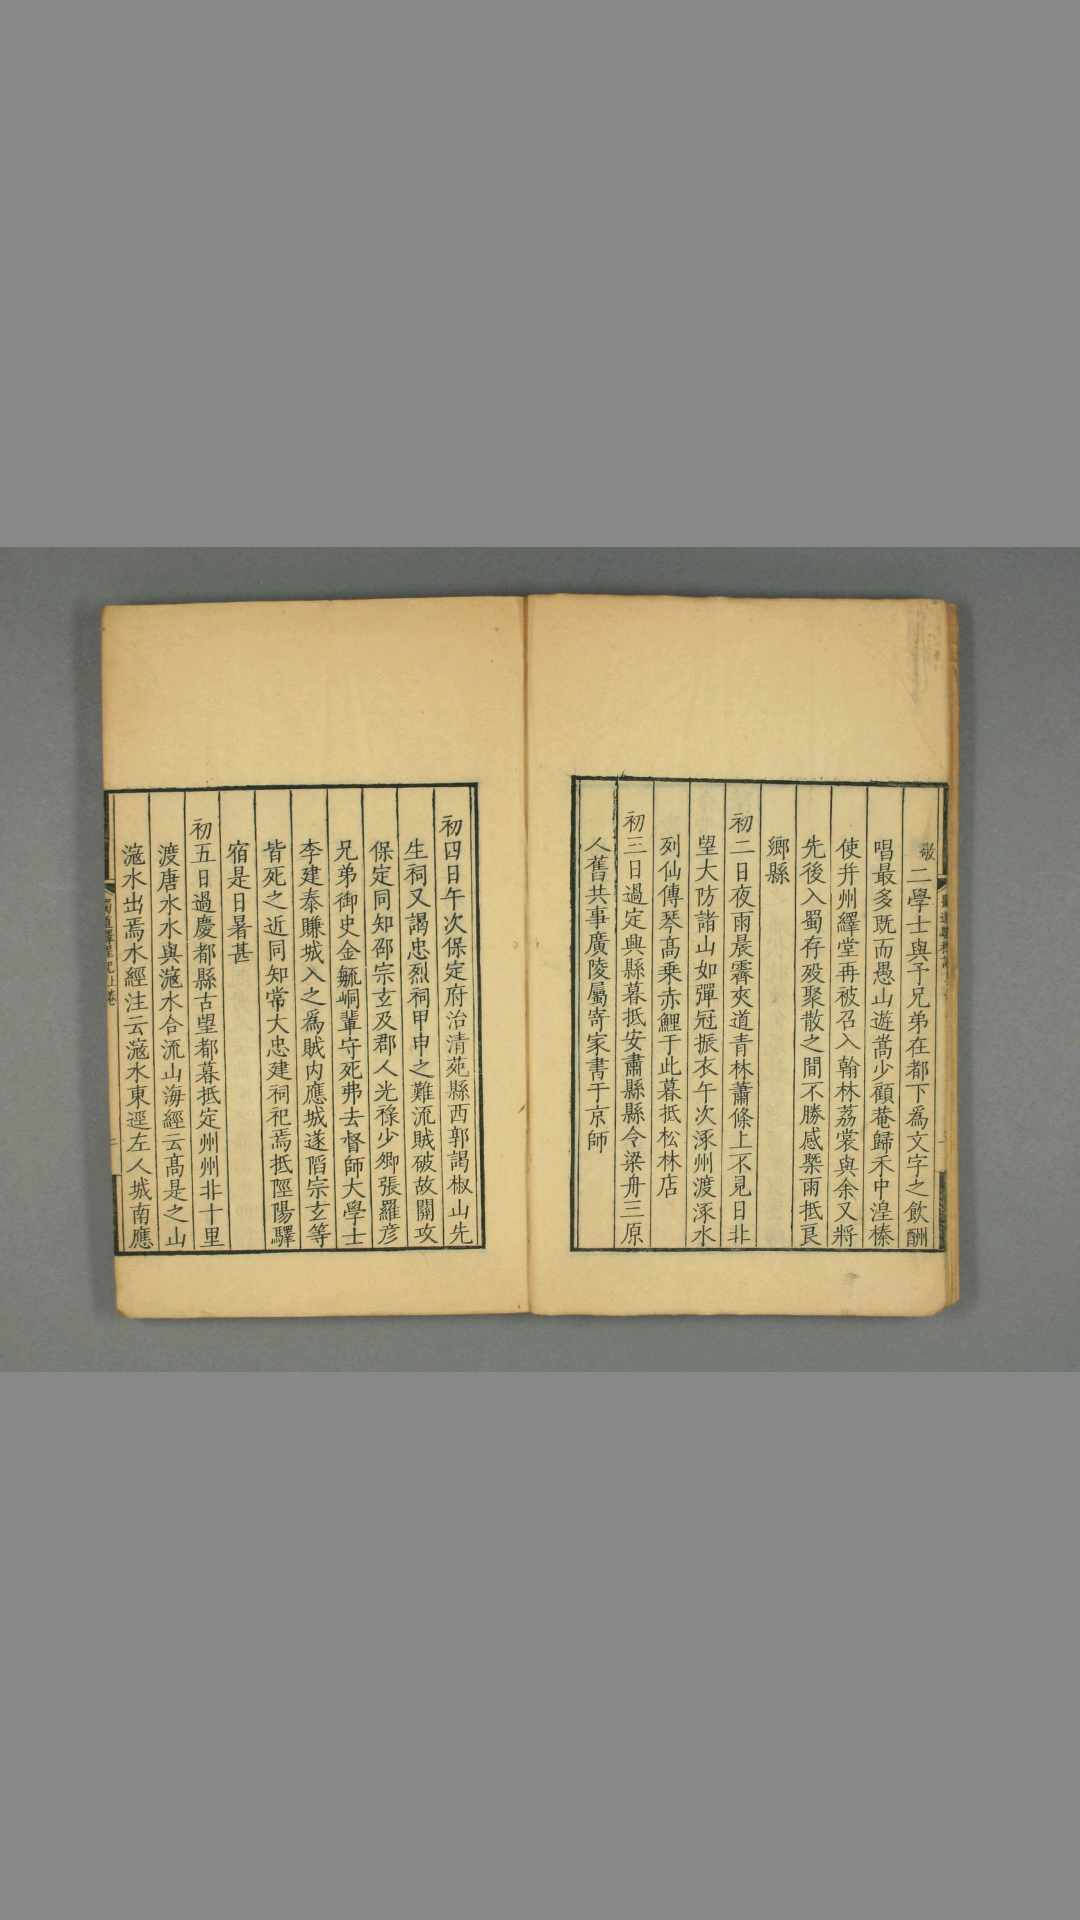 敬二學士與予兄弟在都下爲文字之飲酬
唱最多既而愚山遊嵩少顧菴歸禾中湟榛
使并州繹堂再被召入翰林荔裳與余又將
先後入蜀存殁聚散之間不勝感槩雨抵良
鄉縣
初二日夜雨晨霽夾道青林蕭條上不見日北
望大防諸山如彈冠振衣午次涿州渡涿水
列仙傳琴高乘赤鯉于此暮抵松林店
初三日過定興縣暮抵安肅縣縣令梁舟三原
人舊共事廣陵屬寄家書于京師
初四日午次保定府治清苑縣西郭謁椒山先
生祠又謁忠烈祠甲申之難流賊破故關攻
保定同知邵宗玄及郡人光祿少卿張羅彦
兄弟御史金毓峒輩守死弗去督師大學士
李建泰賺城入之爲賊内應城遂陷宗玄等
皆死之近同知常大忠建祠祀焉抵陘陽驛
宿是日暑甚
初五日過慶都縣古望都暮抵定州州北十里
渡唐水水與滱水合流山海經云高是之山
滱水出焉水經注云滱水東逕左人城南應
蜀道驛程記上卷
二